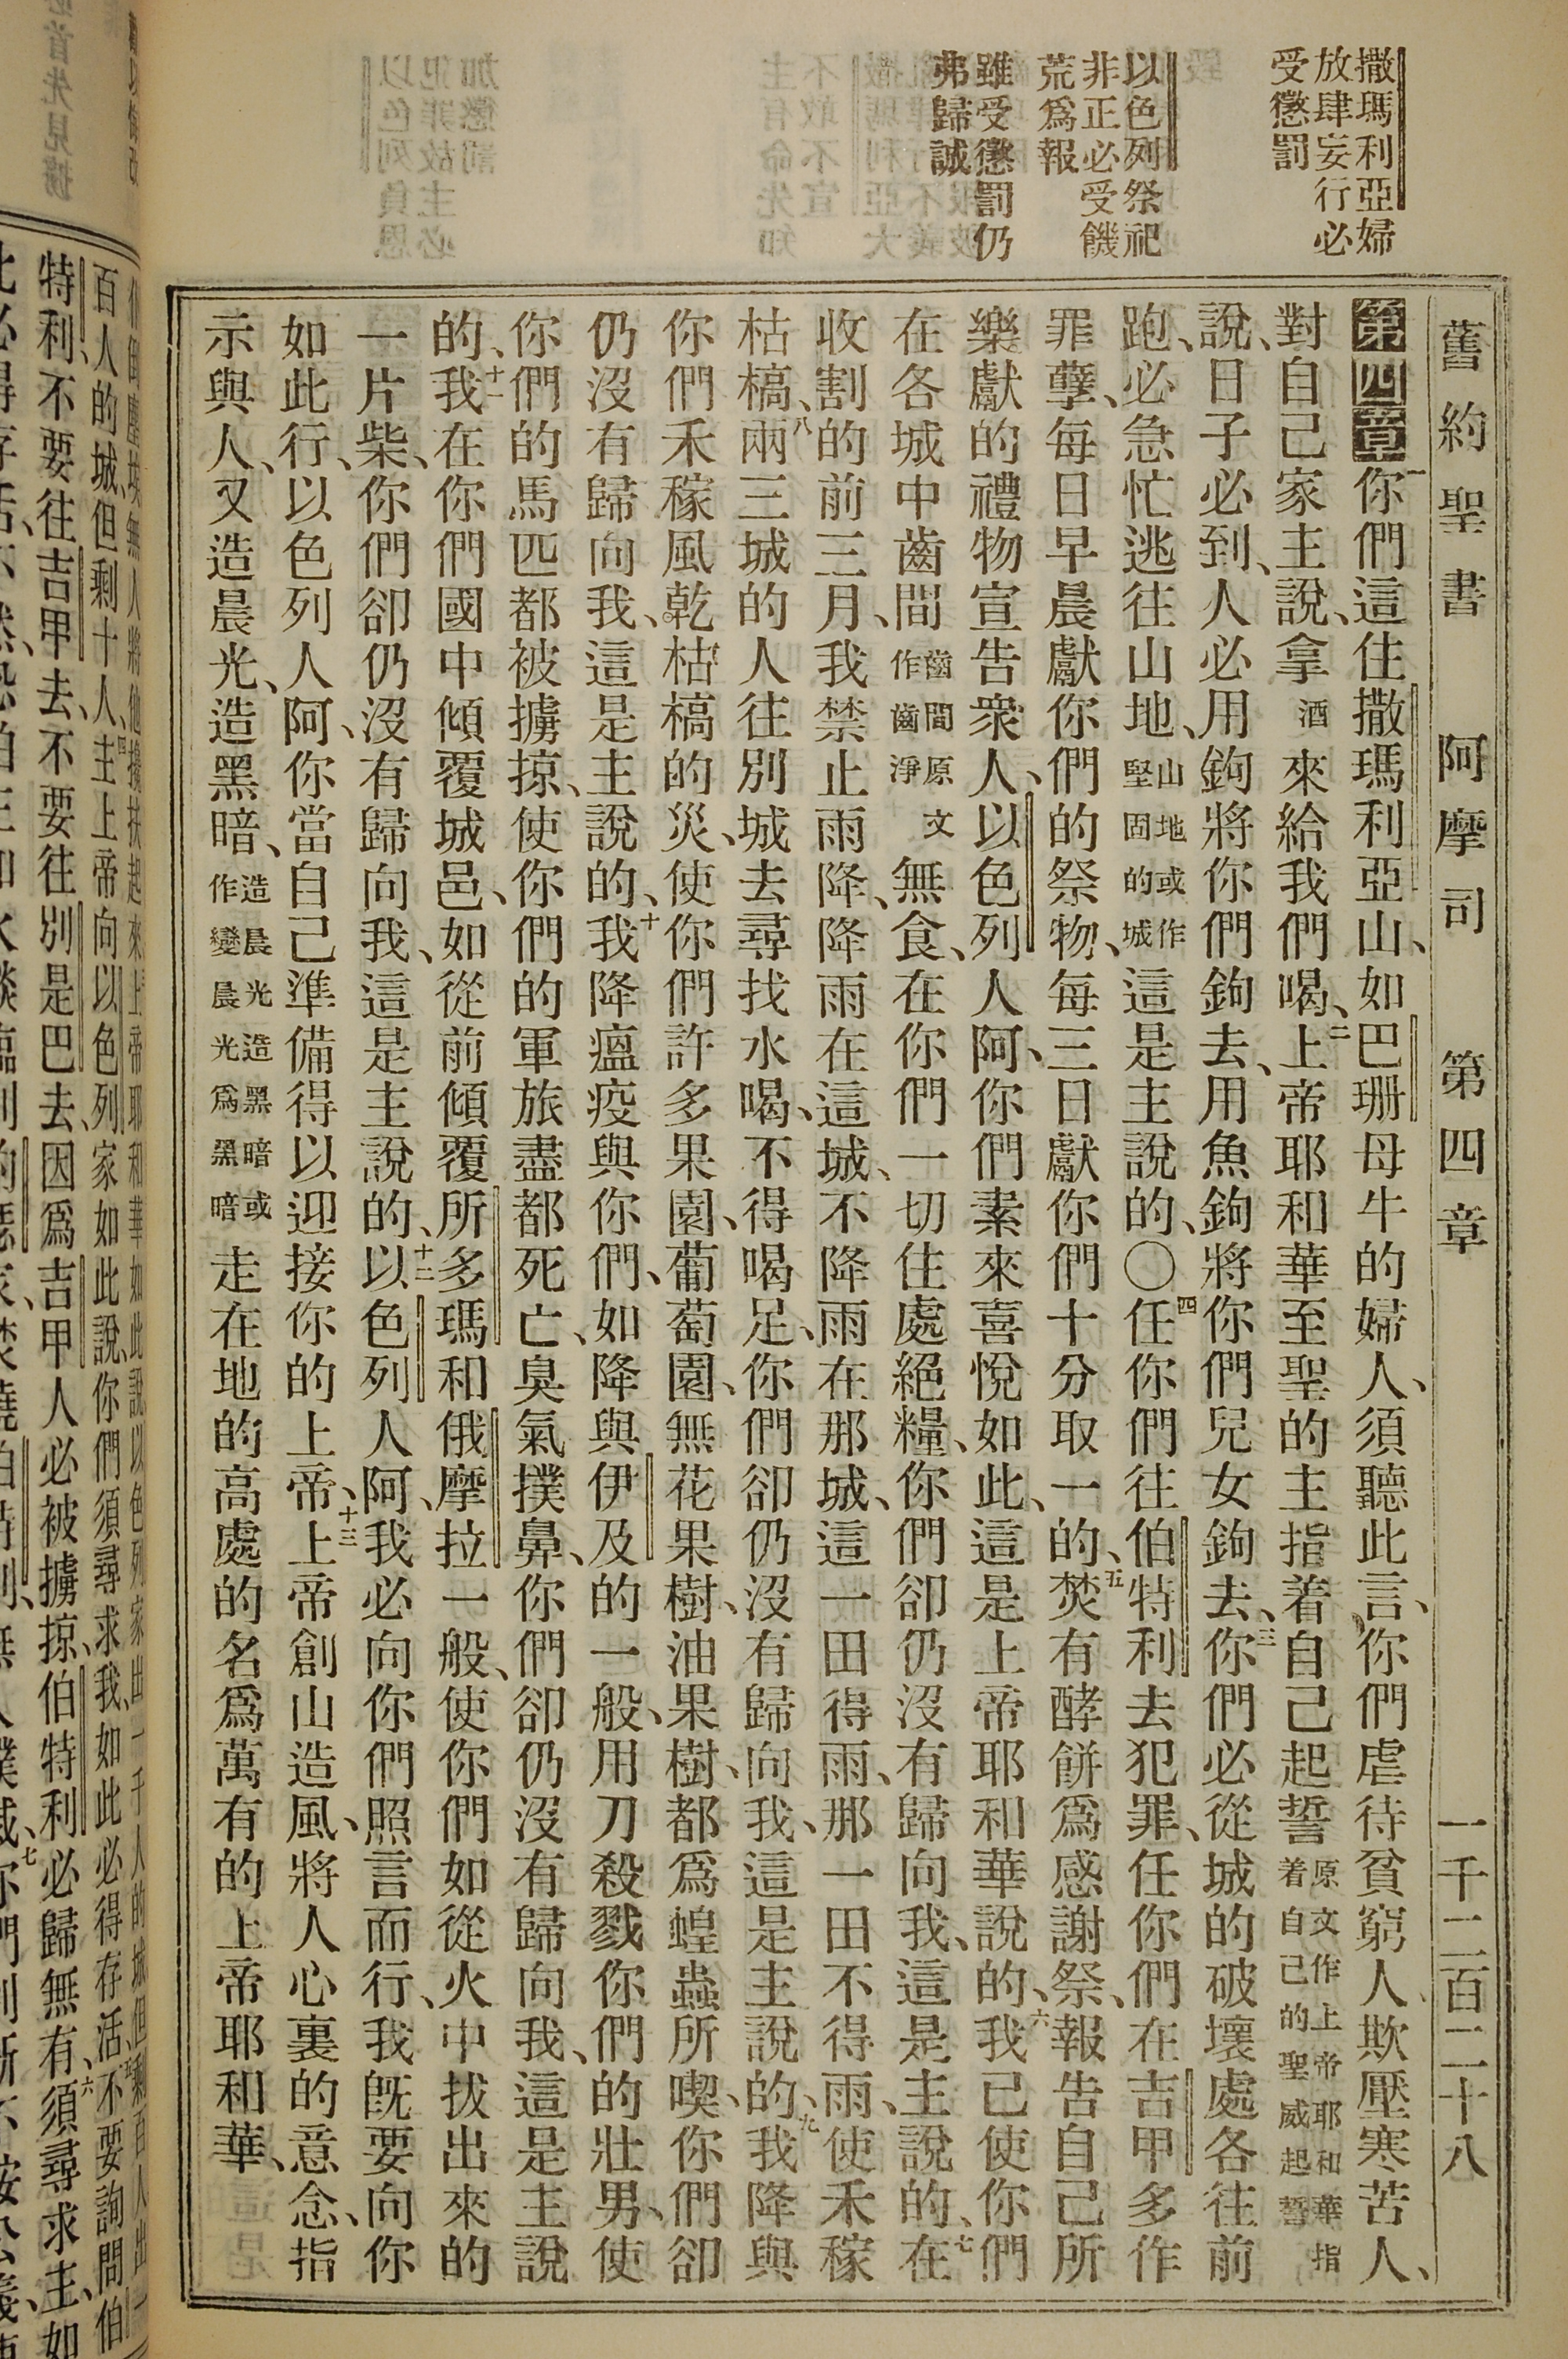 撒瑪利亞婦
放肆妄行必
受懲罰
以色列祭祀
非正必受饑
荒爲報
雖受懲罰仍
弗歸誠
舊約聖書 阿摩司 第四章 一千二百二十八
第四章 一你們這住撒瑪利亞山、如巴珊母牛的婦人、須聽此言、你們虐待貧窮人、欺壓寒苦人、
對自己家主說、拿酒來給我們喝、二上帝耶和華至聖的主指着自己起誓原文作上帝耶和華指着自己的聖威起誓
說、日子必到、人必用鉤將你們鉤去、用魚鉤將你們兒女鉤去、三你們必從城的破壞處各往前
跑、必急忙逃往山地、山地或作堅固的城這是主說的、〇四任你們往伯特利去犯罪、任你們在吉甲多作
罪孽、每日早晨獻你們的祭物、每三日獻你們十分取一的、五焚有酵餅爲感謝祭、報告自己所
樂獻的禮物宣告衆人、以色列人阿、你們素來喜悅如此、這是上帝耶和華說的、六我已使你們
在各城中齒間齒間原文作齒淨無食、在你們一切住處絕糧、你們卻仍沒有歸向我、這是主說的、七在
收割的前三月、我禁止雨降、降雨在這城、不降雨在那城、這一田得雨、那一田不得雨、使禾稼
枯槁、八兩三城的人往別城去尋找水喝、不得喝足、你們卻仍沒有歸向我、這是主說的、九我降與
你們禾稼風乾枯槁的災、使你們許多果園、葡萄園、無花果樹、油果樹、都爲蝗蟲所喫、你們卻
仍沒有歸向我、這是主說的、十我降瘟疫與你們、如降與伊及的一般、用刀殺戮你們的壯男、使
你們的馬匹都被擄掠、使你們的軍旅盡都死亡、臭氣撲鼻、你們卻仍沒有歸向我、這是主說
的、十一我在你們國中傾覆城邑、如從前傾覆所多瑪和俄摩拉一般、使你們如從火中拔出來的
一片柴、你們卻仍沒有歸向我、這是主說的、十二以色列人阿、我必向你們照言而行、我旣要向你
如此行、以色列人阿、你當自己準備得以迎接你的上帝、十三上帝創山造風、將人心裏的意念、指
示與人、又造晨光、造黑暗、造晨光造黑暗或作變晨光爲黑暗走在地的高處的名爲萬有的上帝耶和華、
百人的城、但剩十人、四主上帝向以色列家如此說、你們須尋求我、如此必得存活、不要詢問伯
特利、不要往吉甲去、不要往別是巴去、因爲吉甲人必被擄掠、伯特利必歸無有、六須尋求主、如